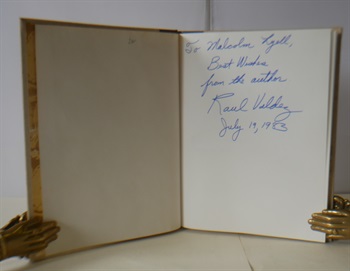 To Malcolm Lyall,
Best Wishes
from the author
Raul Valdez
July 19, 1983